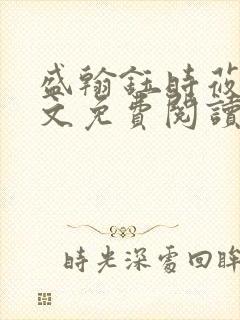 盛翰鈺時莜
文免費閱讀
時光深處回眸